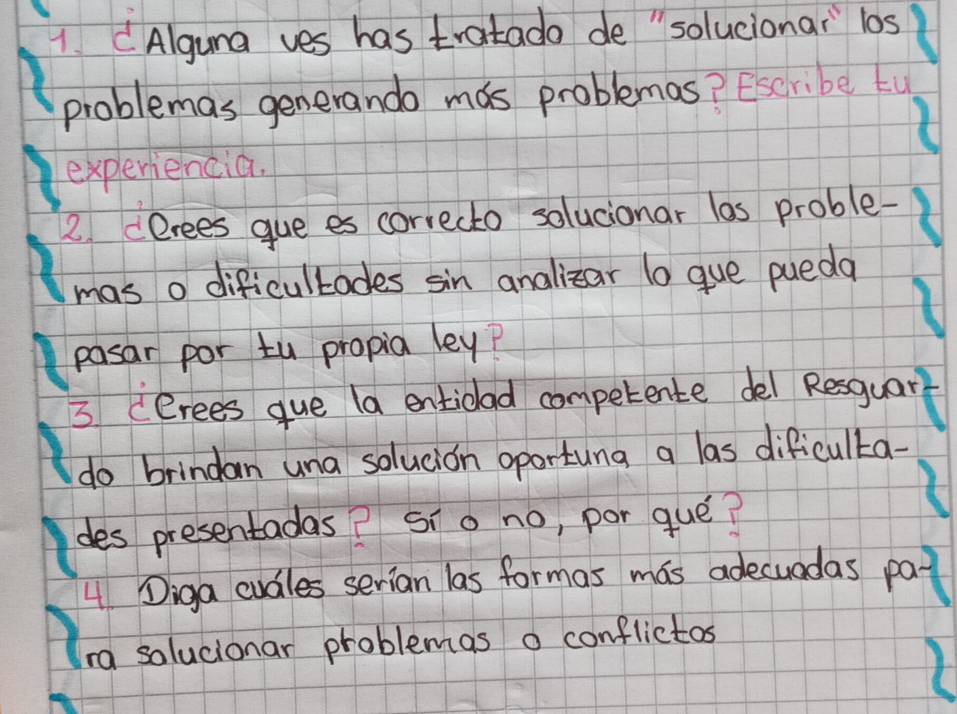 1. ¿Alguna ves has tratado de "solucionar" los
problemas generando más problemas? Escribe tu
experiencia.
2. ¿Crees que es correcto solucionar los proble-
mas o dificultades sin analizar lo que pueda
pasar por tu propia ley?
3. ¿Crees que la entidad competente del Resguar-
do brindan una solución oportuna a las dificulta-
des presentadas? Sí o no, por qué?
4. Diga cuáles serían las formas más adecuadas pa-
ra solucionar problemas o conflictos